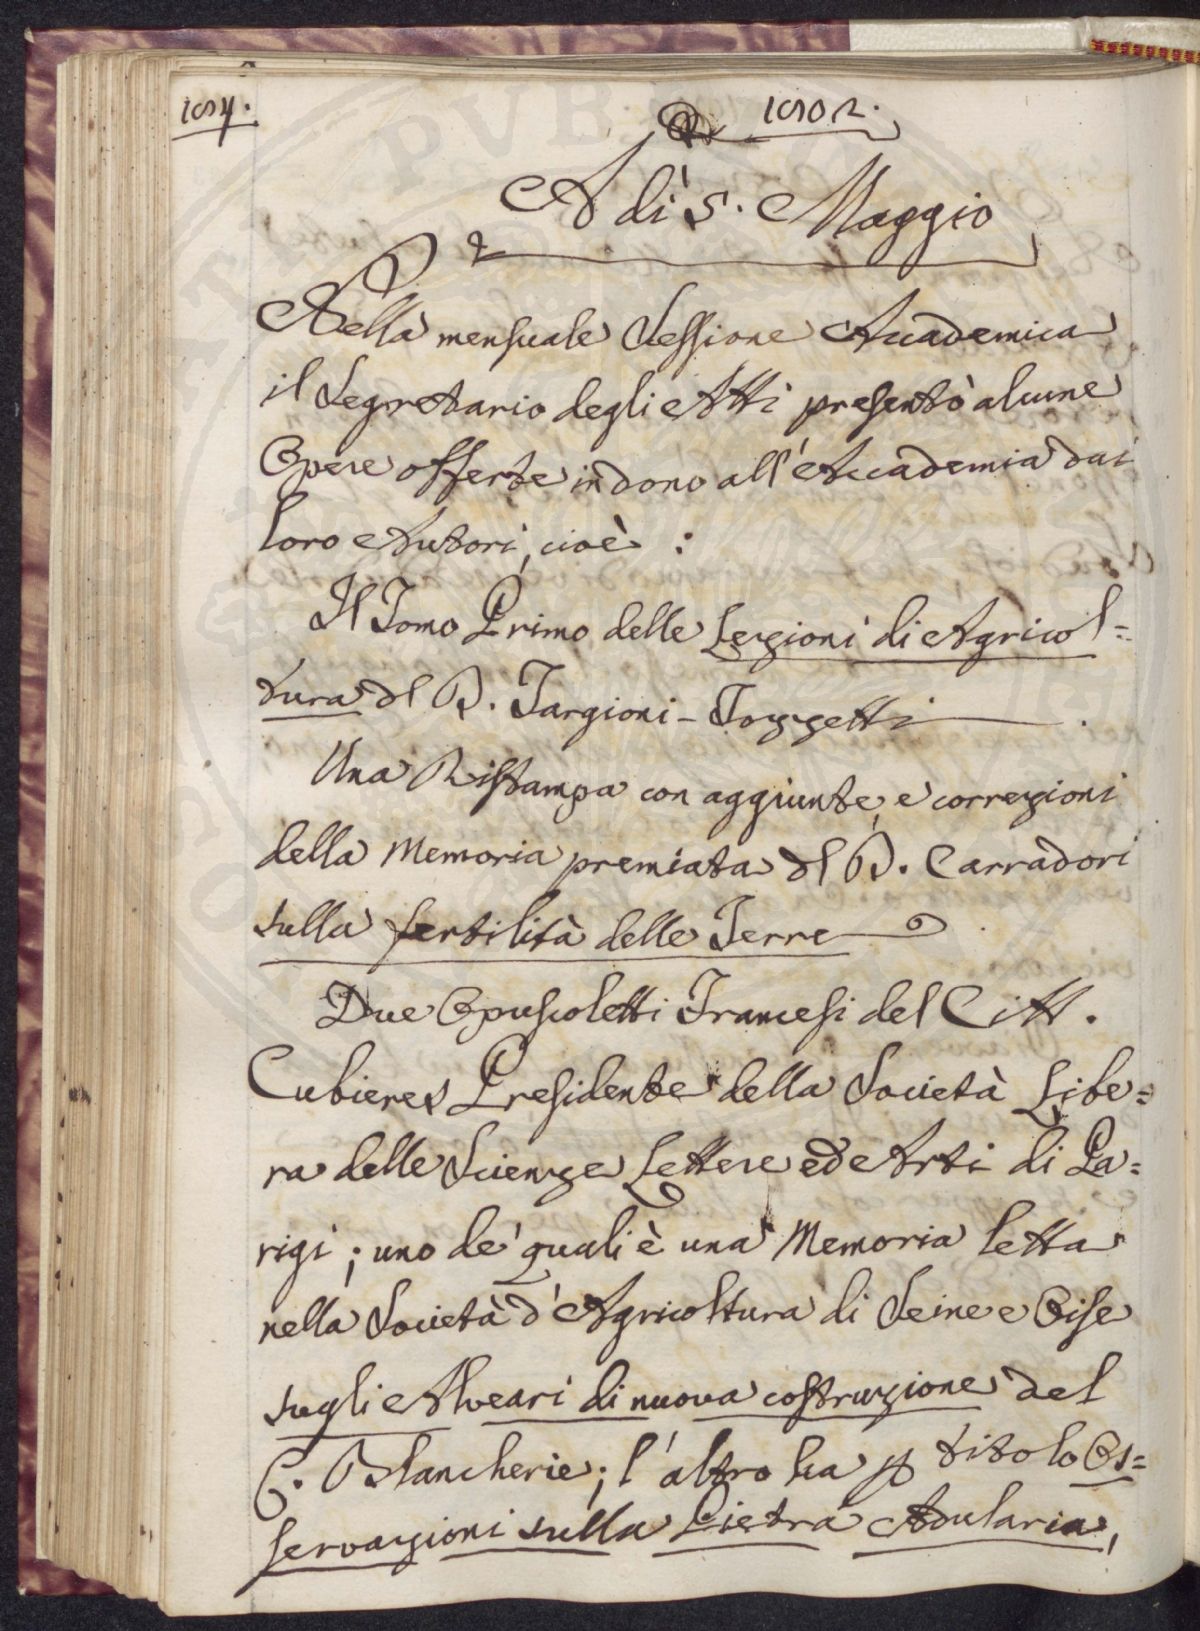 184.
1802.
A dì 5. Maggio
Nella mensuale Sessione Accademica
il Segretario degli Atti presentò alcune
Opere offerte in dono all'Accademia dai
loro Autori, cioè :
Il Tomo Primo delle Lezioni di Agricol=
tura del D. Targioni-Tozzetti.
Una Ristampa con aggiunte, e correzioni
della Memoria premiata del D. Carradori
sulla fertilità delle Terre
Due Opuscoletti Francesi del Citt.
Cubieres Presidente della Società Libe=
ra delle Scienze Lettere ed Arti di Pa=
rigi ; uno de' quali è una Memoria letta
nella Società d'Agricoltura di Seine e Oise
sugli Alveari di nuova costruzione del
C. Blancherie ; l'altro ha p titolo Os=
servazioni sulla Pietra Adularia,